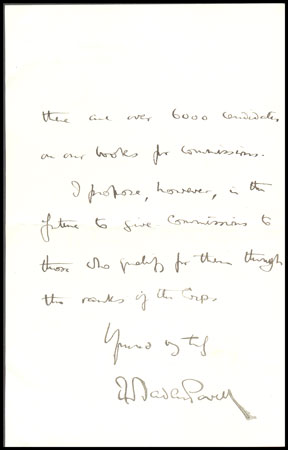 there are over 6000 candidates
on our books for commissions.
I propose, however, in the
future to give commissions to
those who qualify for them through
the ranks of the Corps.
Yours vy try
RS Baden Powell